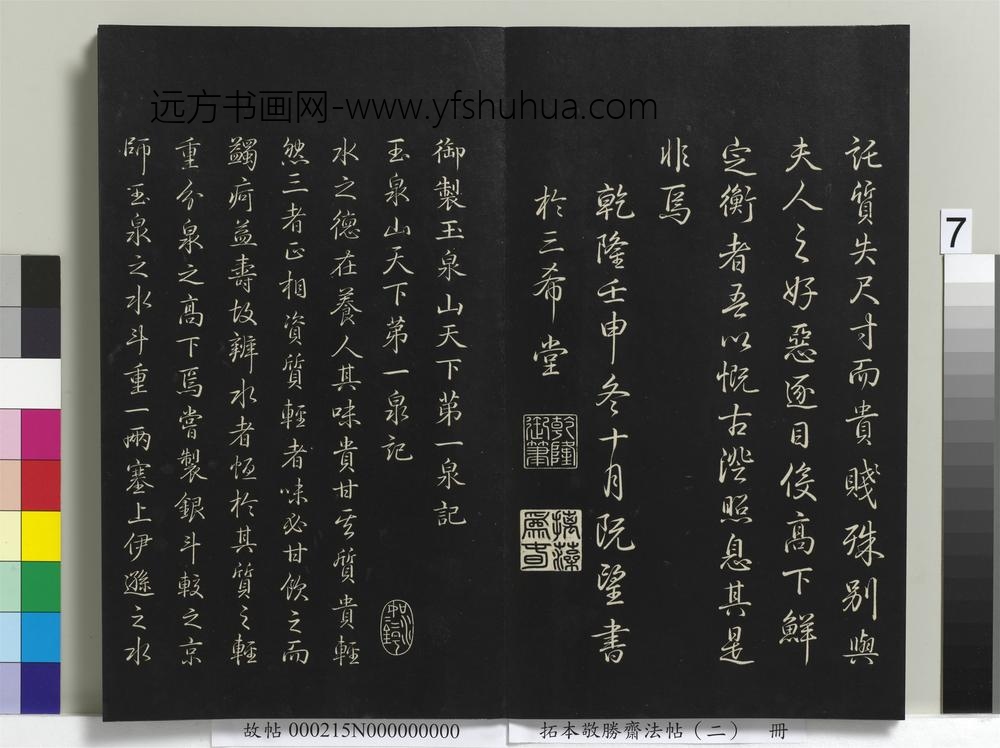 远方书画网-www.yfshuhua.com
託質失尺寸而貴賤殊別與
夫人之好惡逐目侫高下鮮
定衡者吾以慨古澄照息其是
非焉
乾隆壬申冬十月既望書
於三希堂
乾隆
御筆
摛藻
為春
御製玉泉山天下第一泉記
玉泉山天下第一泉記
水之德在養人其味貴甘其質貴輕
然三者正相資質輕者味必甘飲之而
蠲痾益壽故辨水者恒於其質之輕
重分泉之高下焉嘗製銀斗較之京
師玉泉之水斗重一兩塞上伊遜之水
7
故帖 000215N000000000
拓本敬勝齋法帖（二） 冊